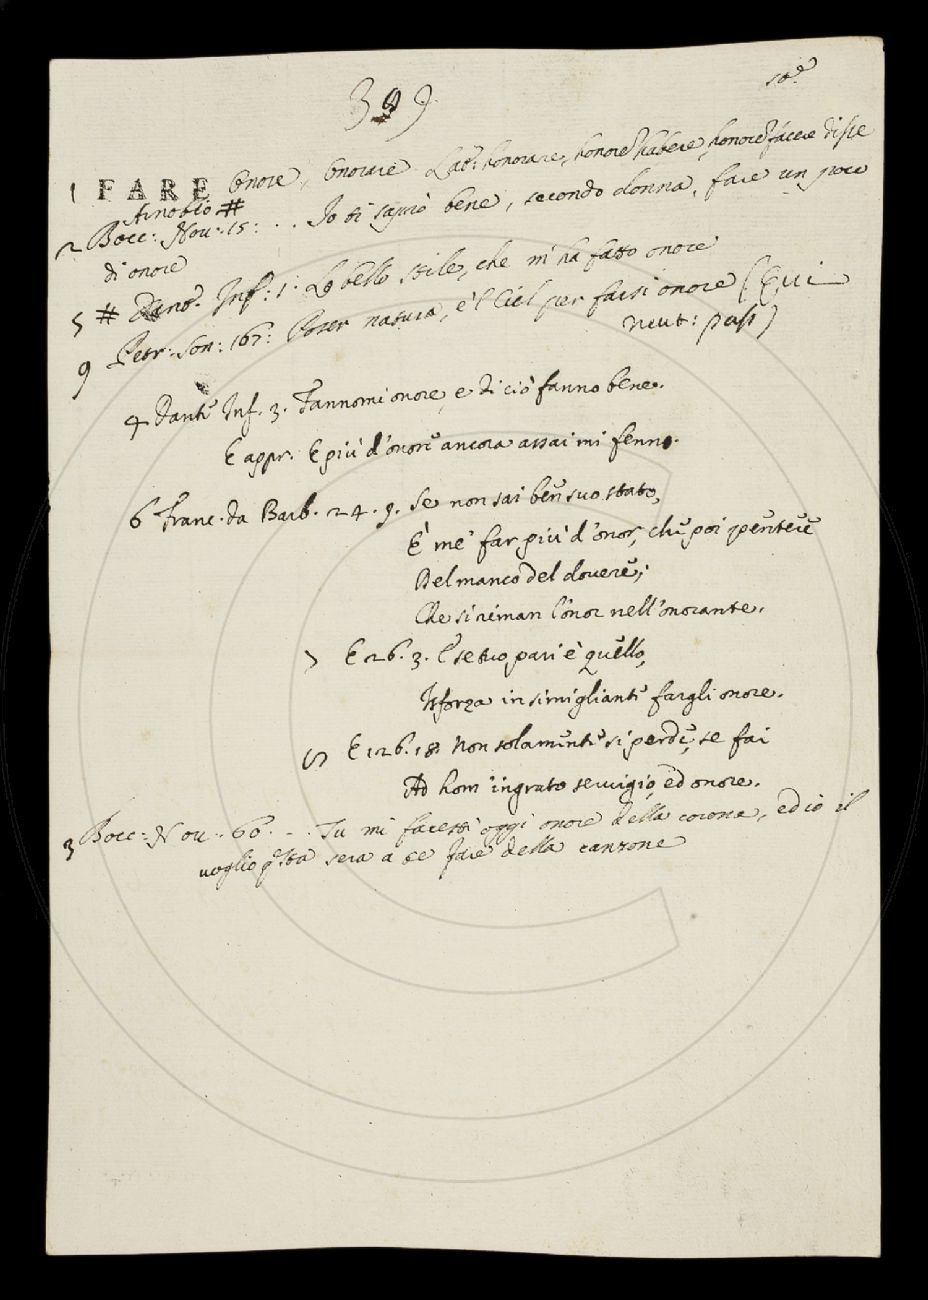 399
1 FARE Onore, Onorare. Lat: honorare, honorẽ habere, honorẽ facere disse
Arnobio #
2 Bocc: Nov: 15: . . Io ti saprò bene, secondo donna, fare un poco
di onore
5 # Dant. Inf: 1. Lo bello stile, che m'ha fatto onore
9 Petr. Son: 167: Poser natura, e 'l Ciel per farsi onore (Qui
neut: pass)
4 Dante Inf. 3. Fannomi onore, e di ciò fanno bene.
E appr. E più d'onore ancora assai mi fenno.
6 Franc. da Barb. 24. 9. Se non sai ben suo stato,
È me' far più d'onor, che poi pentere
Del manco del dovere;
Che si riman l'onor nell'onorante.
7 E 26. 3. E se tuo pari è quello,
Isforza in simigliante fargli onore.
E 126. 18 Non solamente si perde, se fai
Ad hom ingrato servigio, ed onore.
3 Bocc: Nov. 60. . . Tu mi facesti oggi onore della corona, ed io il
voglio q̃sta sera a te fare della canzone